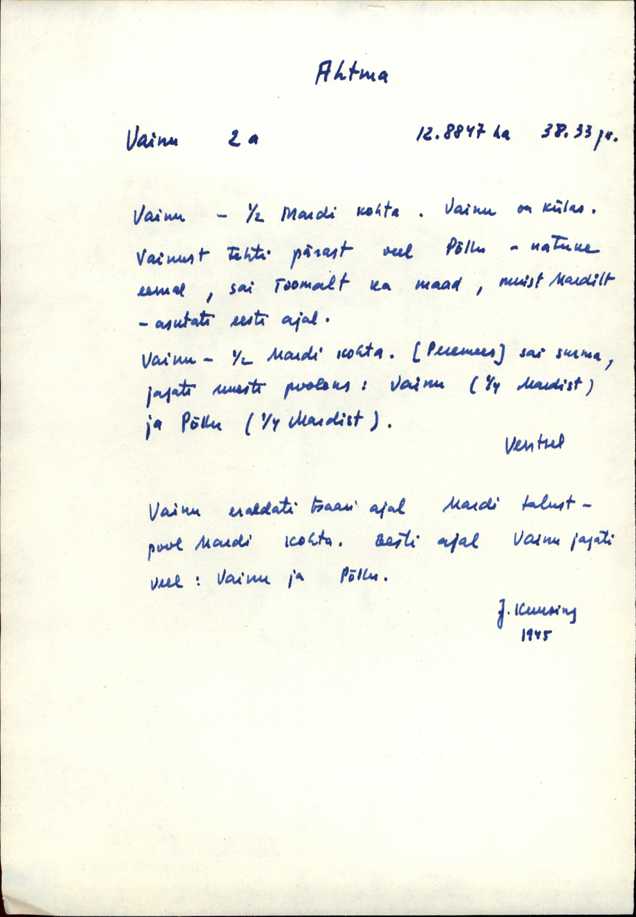 Ahtma
Vainu 2a 12.8847 ha 38.33 jr.
Vainu - 1/2 Mardi kohta. Vainu on külas.
Vainust tehti pärast veel Põllu - natuke
eemal, sai Toomalt ka maad, muist Mardilt
- asutati eesti ajal.
Vainu - 1/2 Mardi kohta. [Peremees] sai surma,
jagati uuesti pooleks: Vainu (1/4 Mardist)
ja Põllu (1/4 Mardist).
Ventsel
Vainu eraldati tsaari ajal Mardi talust -
pool Mardi kohta. Eesti ajal Vainu jagati
veel: Vainu ja Põllu.
J. Kuusing
1945